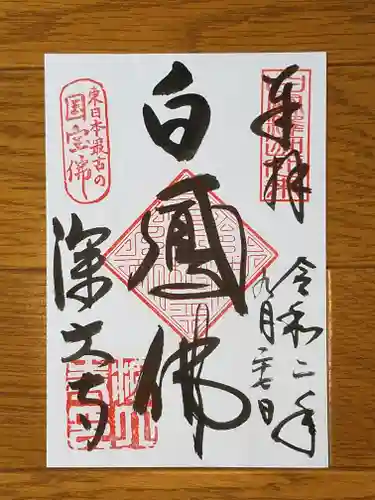 奉拝
令和二年
九月二七日
白鳳佛
東日本最古の
国宝佛
深大寺